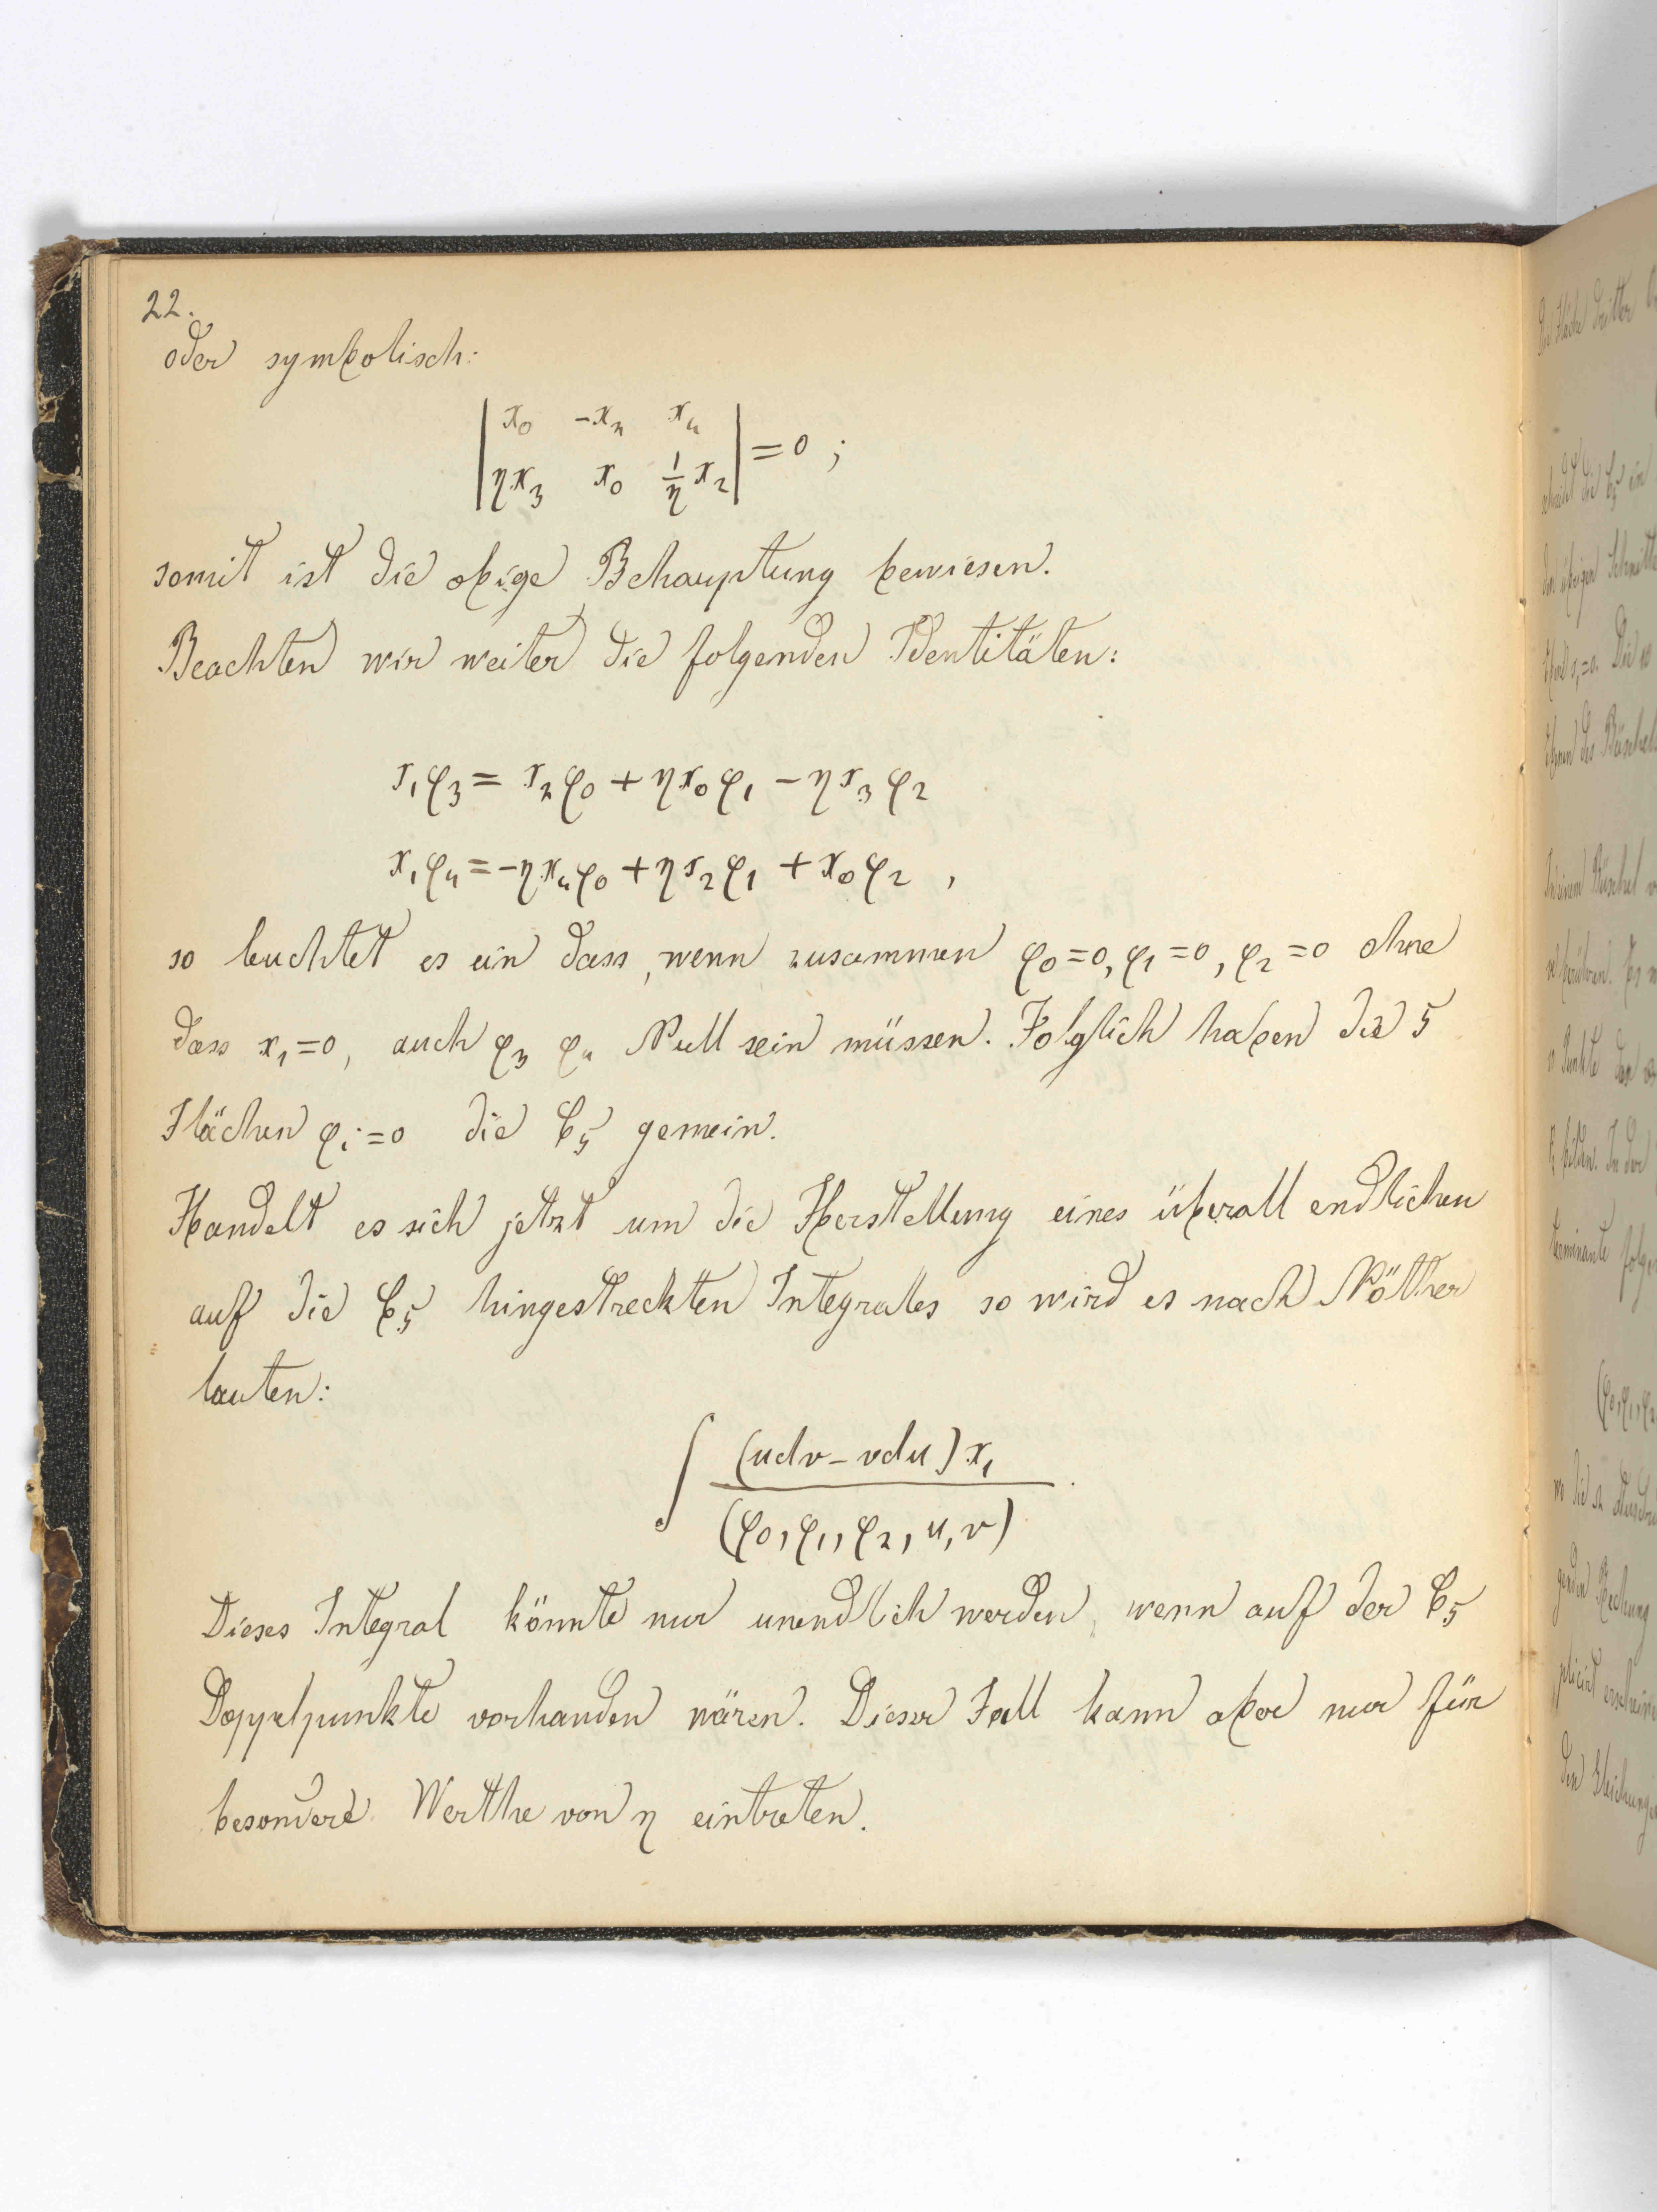 22.
oder symbolisch:
| x₀ -x₄ x₄ |
| ηx₃ x₀ 1/η x₂ | = 0 ;
somit ist die obige Behauptung bewiesen.
Beachten wir weiter die folgenden Identitäten:
x₁φ₃ = x₂φ₀ + ηx₀φ₁ - ηx₃φ₂
x₁φ₄ = -ηx₄φ₀ + ηx₂φ₁ + x₀φ₂ ,
so leuchtet es ein dass, wenn zusammen φ₀=0, φ₁=0, φ₂=0 ohne
dass x₁=0, auch φ₃ φ₄ Null sein müssen. Folglich haben die 5
Flächen φᵢ=0 die C₅ gemein.
Handelt es sich jetzt um die Herstellung eines überall endlichen
auf die C₅ hingestreckten Integrales so wird es nach Nöther
lauten:
∫ (udv - vdu) x₁ / (φ₀, φ₁, φ₂, u, v) .
Dieses Integral könnte nur unendlich werden, wenn auf der C₅
Doppelpunkte vorhanden wären. Dieser Fall kann aber nur für
besondere Werthe von η eintreten.